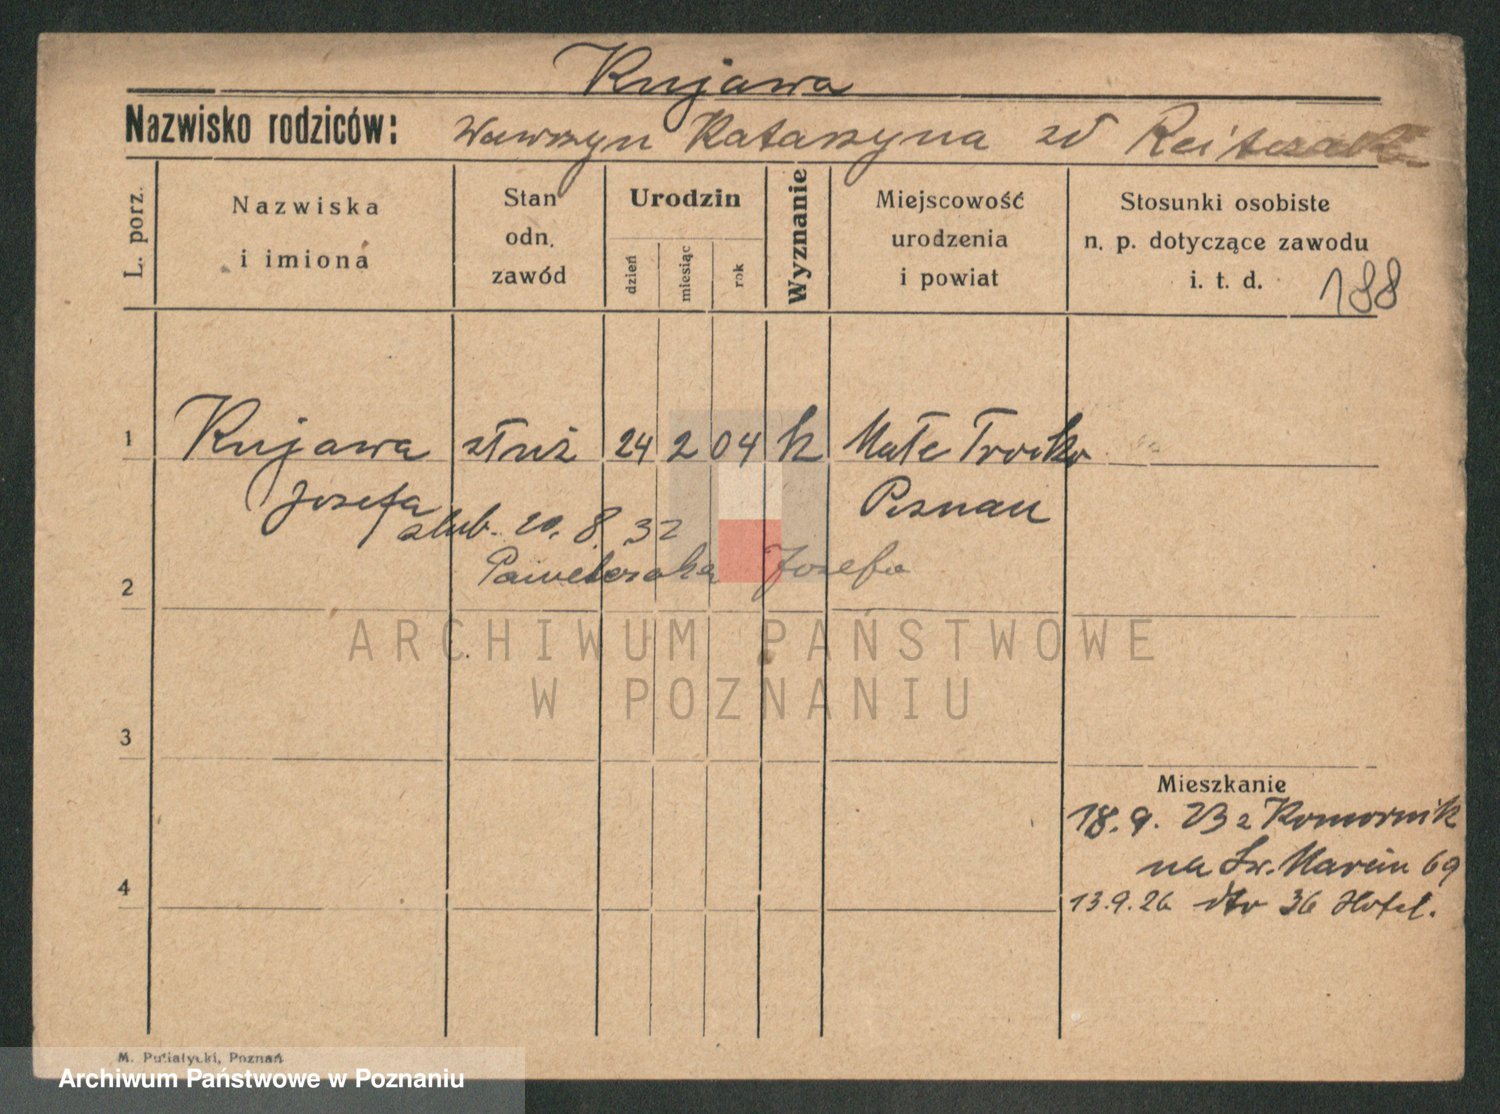 Kujawa
Nazwisko rodziców: Wawrzyn Katarzyna zd
L. porz.
Nazwiska
i imiona
Stan
odn.
zawód
Urodzin
dzień
miesiąc
rok
Wyznanie
Miejscowość
urodzenia
i powiat
Stosunki osobiste
n. p. dotyczące zawodu
i. t. d. 188
1 Kujawa służ 24 2 04 k Małe
Józefa Poznań
ślub. 20. 8. 32
Józefa
2
ARCHIWUM PAŃSTWOWE
W POZNANIU
3
Mieszkanie
18. 9. 23 z Komornik
na Św. Marcin 69
4
13.9.26 dto 36 Hotel.
M. Putiatycki, Poznań
Archiwum Państwowe w Poznaniu